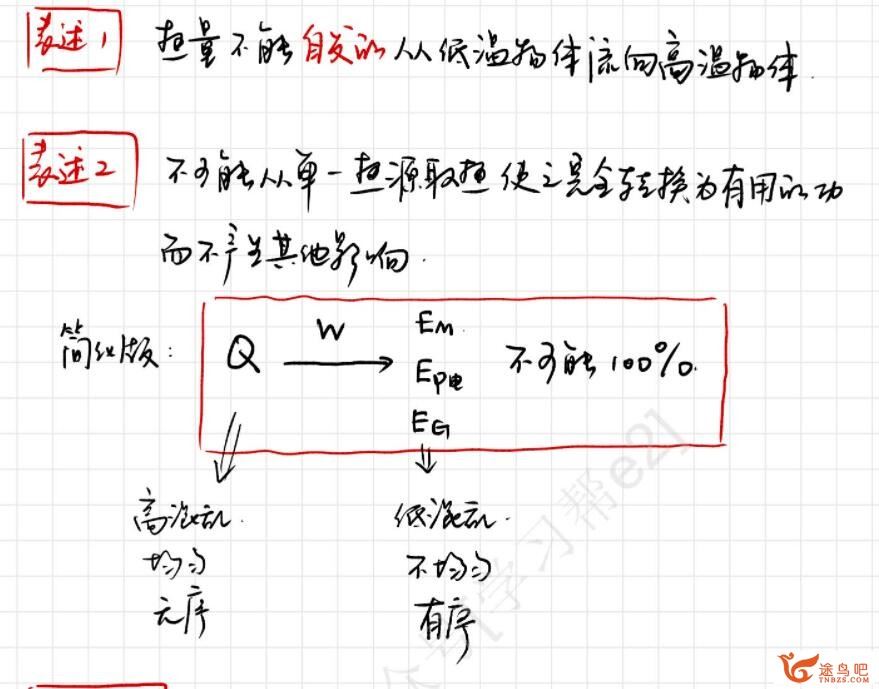 表述1 热量不能自发的从低温物体流向高温物体.
表述2 不可能从单一热源取热使之完全转换为有用的功
而不产生其他影响.
简化版: Q W→ Em
Ep电 不可能100%.
EG
高混乱. 低混乱.
均匀 不均匀
无序 有序
公众号[学习帮e2]
途鸟吧
TNBZS.COM